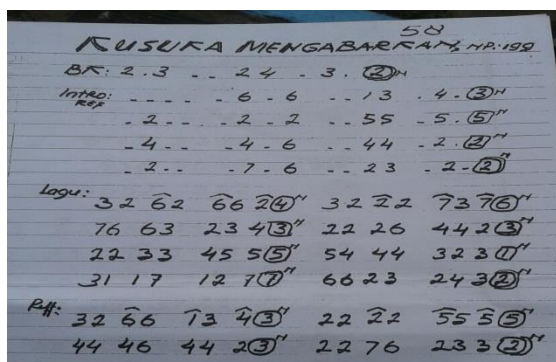 58
KUSUKA MENGABARKAN, NP:199
BK: 2.3 .. 24 .3.②
Intro: .... .6.6 ..13 .4.③
REF
.2.. .2.2 ..55 .5.⑤
.4.. .4.6 ..44 .2.②
.2.. .7.6 ..23 .2.②
Lagu: 32 62 66 2④ 32 22 73 7⑥
76 63 23 4③ 22 26 44 2③
22 33 45 5⑤ 54 44 32 3①
31 17 12 7⑦ 66 23 24 3②
Reff: 32 66 13 4③ 22 22 55 5⑤
44 46 44 2③ 22 76 23 3②